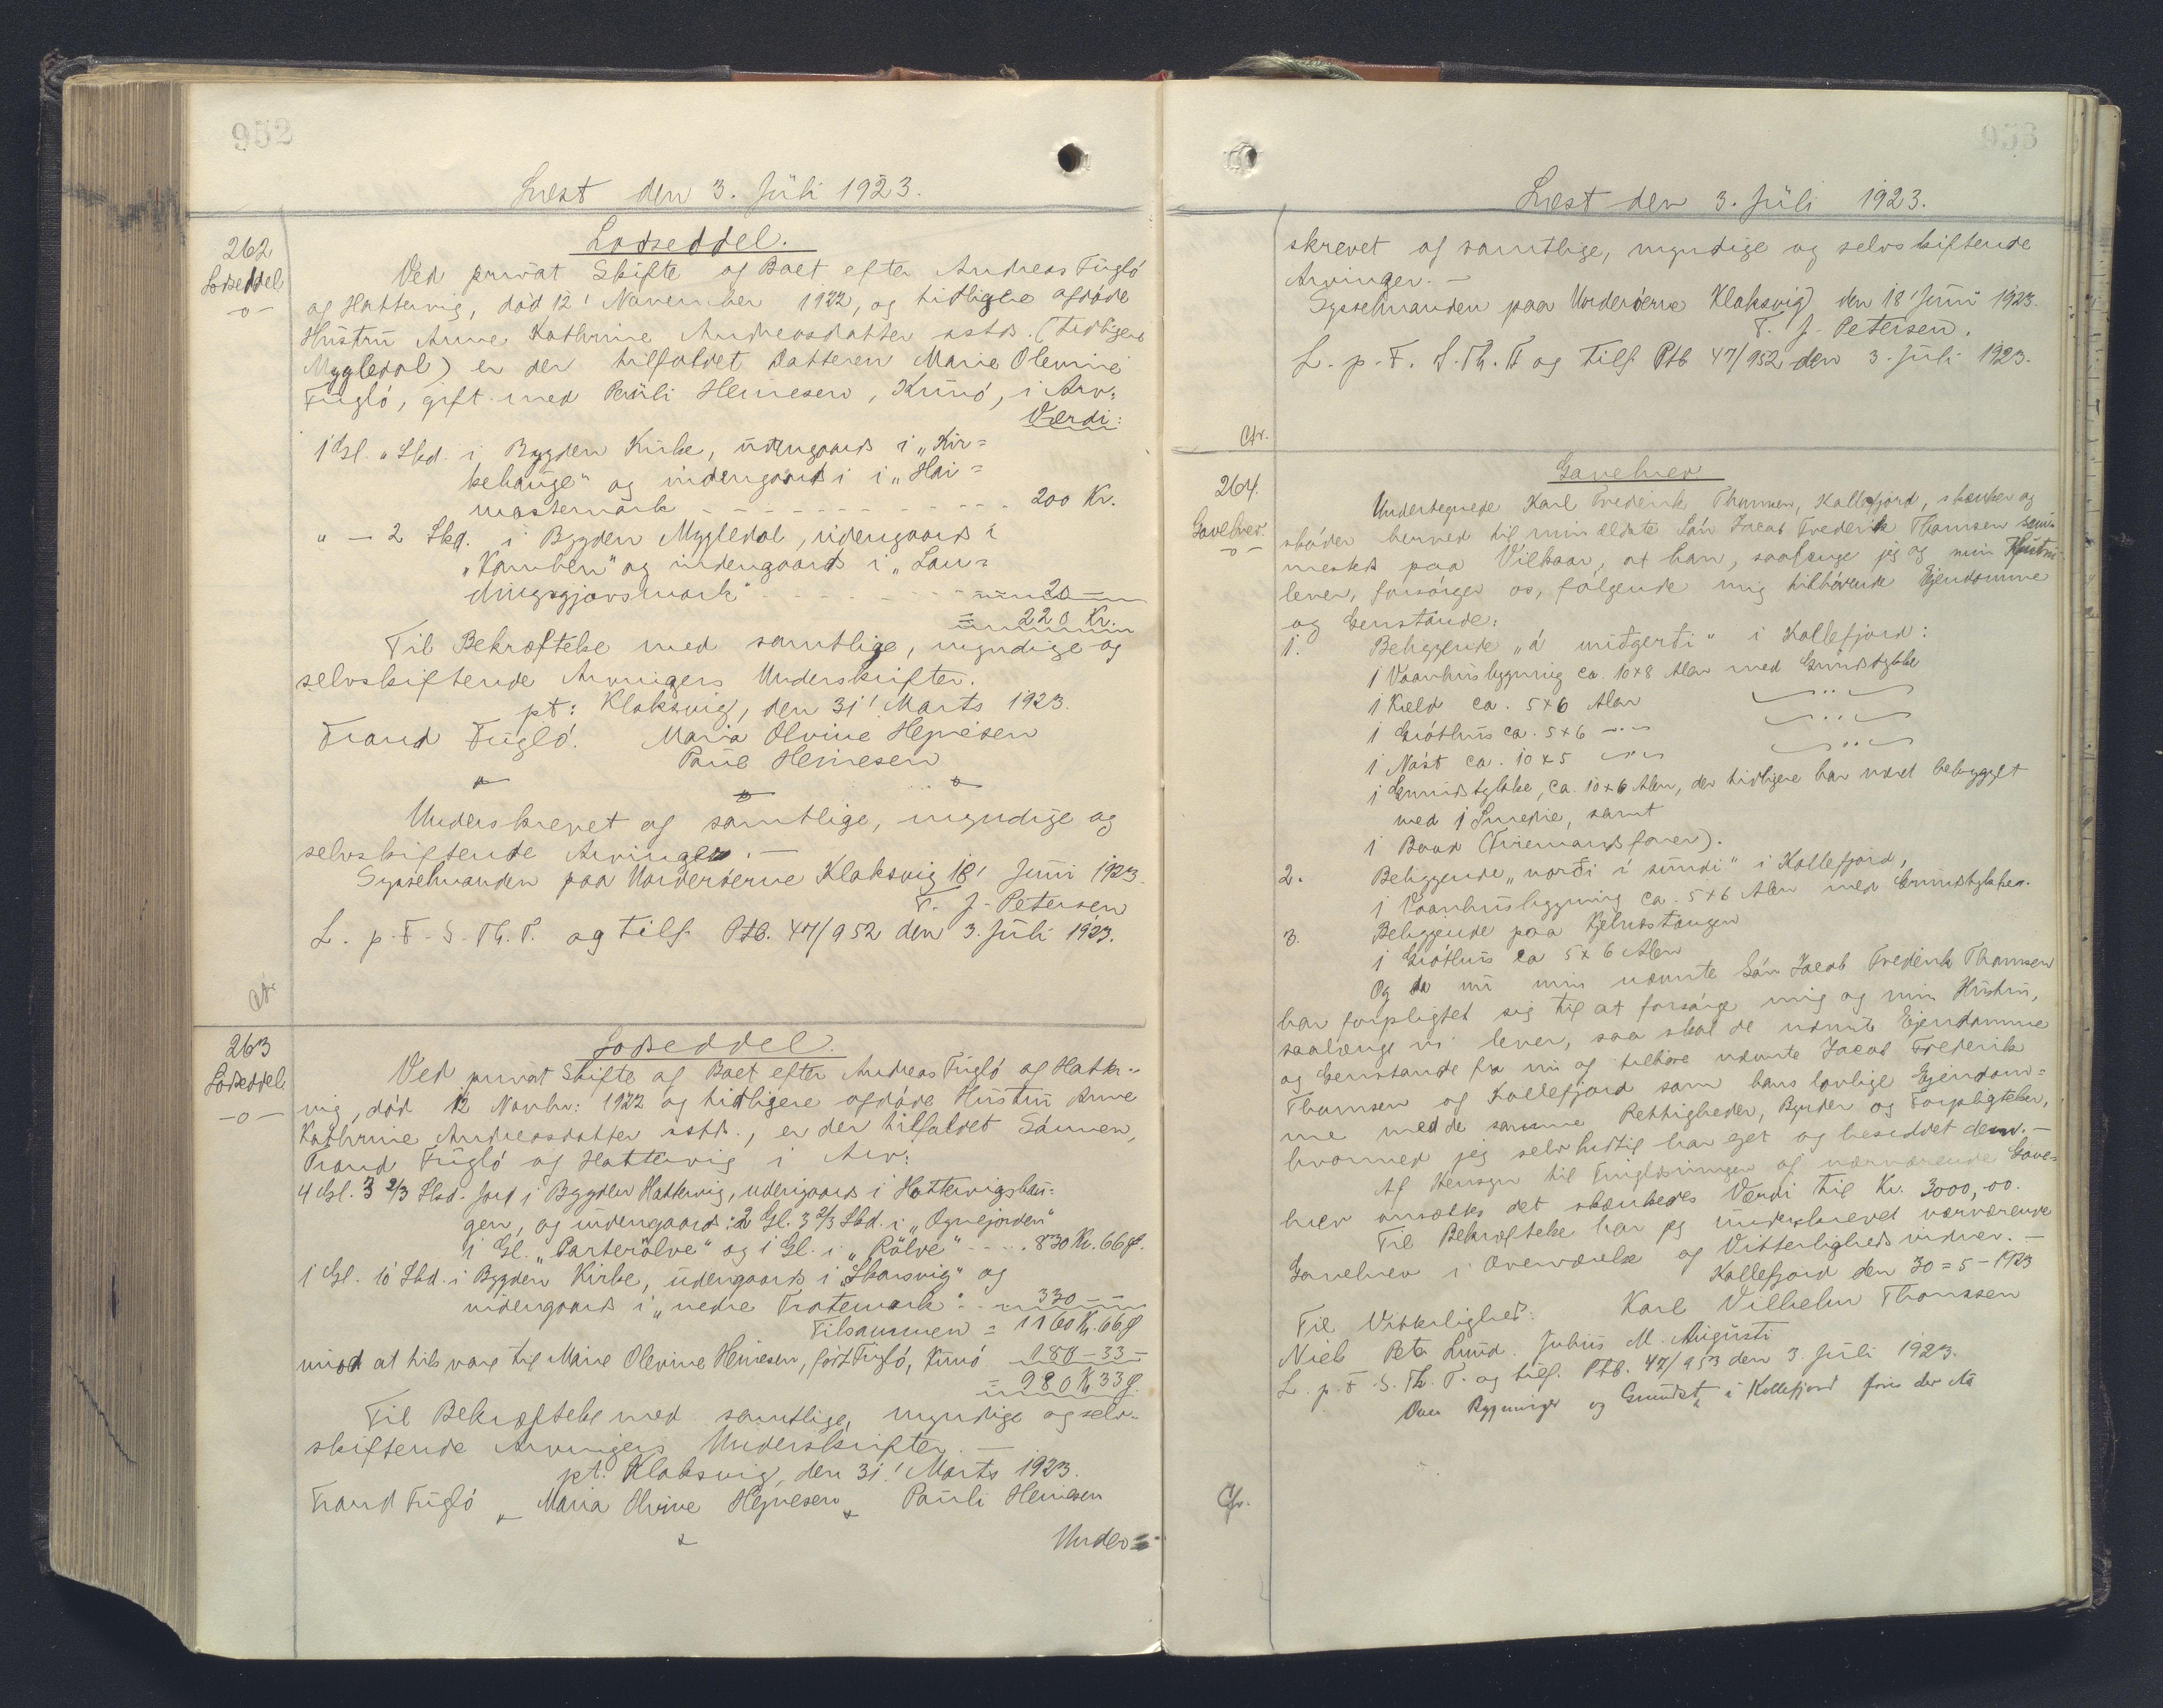 952
Læst den 3. Juli 1923.
262
Lodseddel
-o-
Lodseddel.
Ved privat Skifte af Boet efter Andreas Fugló
af Hattervig, død 12' November 1922, og tidligere afdøde
Hustru Anne Kathrine Andreasdatter sstds. (tidligere
Mygledal) er der tilfaldet Datteren Marie Olevine
Fugló, gift med Pauli Heinesen, Kunó, i Arv:
Værdi:
1 Gl. " Skd. i Bygden Kirke, udengaards i „Kir=
kehauge" og indengaards i „Hai=
mastemark - - - - - 200 Kr.
" - 2 Skd. i Bygden Mygledal, udengaards i
„Kamben" og indengaards i „Lan=
dingsgjovsmark" - - - - - 20 -
= 220 Kr.
Til Bekræftelse med samtlige, myndige og
selvskiftende Arvingers Underskrifter.
pt: Klaksvig, den 31' Marts 1923.
Trand Fugló. Maria Olvine Hejnesen
Paue Heinesen
Underskrevet af samtlige, myndige og
selvskiftende Arvinger. -
Sysselmanden paa Norderøerne Klaksvig 18' Juni 1923.
T. J. Petersen
L. p. F. S. Th. T. og tilf. Ptb. 47/952 den 3. Juli 1923.
Ctr.
263
Lodseddel
-o-
Lodseddel.
Ved privat Skifte af Boet efter Andreas Fugló af Hatter-
vig, død 12 Novbr: 1922 og tidligere afdøde Hustru Anne
Kathrine Andreasdatter sstds., er der tilfaldet Sønnen,
Trand Fugló af Hattervig i Arv:
4 Gl. 3 2/3 Skd. Jord i Bygden Hattervig, udengaards i Hattervigshau=
gen, og indengaards: 2 Gl. 3 2/3 Skd. i „Ognejorden"
1 Gl. „Parterølve" og 1 Gl. i „Rølve" - - - 830 Kr. 66 Ø.
1 Gl. 10 Skd. i Bygden Kirke, udengaards i „Skarsvig" og
indengaards i „nedre Tratemark" - - 330 - -
Tilsammen = 1160 Kr. 66 Ø
mod at tilsvare til Marie Olevine Heinesen, født Fugló, Kunó 180 - 33 -
= 980 Kr 33 Ø.
Til Bekræftelse med samtlige, myndige og selv-
skiftende Arvingers Underskrifter. -
pt. Klaksvig, den 31.' Marts 1923.
Trand Fugló Maria Olvine Hejnesen Pauli Heinesen
Under=
953
Læst den 3. Juli 1923.
skrevet af samtlige, myndige og selvskiftende
Arvinger. -
Sysselmanden paa Norderøerne Klaksvig den 18' Juni 1923.
T. J. Petersen.
L. p. F. S. Th. T. og tilf. Ptb 47/952 den 3. Juli 1923.
Ctr.
264.
Gavebrev.
-o-
Gavebrev
Undertegnede Karl Frederik Thomsen, Kollefjord, skænker og
skøder herved til min ældste Søn Jacob Frederik Thomsen sam-
mesteds paa Vilkaar, at han, saalænge jeg og min Hustru
lever, forsørger os, følgende mig tilhørende Ejendomme
og Genstande:
1. Beliggende „á miðgerði" i Kollefjord:
1 Vaanhusbygning ca. 10x8 Alen med Grundstykke
1 Kæld ca. 5x6 Alen
1 Gróthus ca. 5x6
1 Nøst ca. 10x5
1 Grundstykke, ca. 10x6 Alen, der tidligere har været bebygget
med 1 Smedie, samt
1 Baad (Firemandsfarer).
2. Beliggende „norði í sundi" i Kollefjord,
1 Vaanhusbygning ca. 5x6 Alen med Grundstykke.
3. Beliggende paa Kjelnestangen
1 Gróthus ca 5x6 Alen
Og da nu min nævnte Søn Jacob Frederik Thomsen
har forpligtet sig til at forsørge mig og min Hustru,
saalænge vi lever, saa skal de nævnte Ejendomme
og Genstande fra nu af tilhøre nævnte Jacob Frederik
Thomsen af Kollefjord som hans lovlige Ejendom=
me med de samme Rettigheder, Byrder og Forpligtelser,
hvormed jeg selv hidtil har ejet og besiddet dem. -
Af Hensyn til Tinglæsningen af nærværende Gave=
brev ansættes det skænkedes Værdi til Kr. 3000,-00.
Til Bekræftelse har jeg underskrevet nærværende
Gavebrev i Overværelse af Vitterlighedsvidner. -
Kollefjord den 30=5-1923
Til Vitterlighed: Karl Vilhelm Thomsen
Niels Peter Lund. Julius M. Augusti
L. p. F. S. Th. T. og tilf. Ptb. 47/953 den 3. Juli 1923.
Over Bygninger og Grundst. i Kollefjord